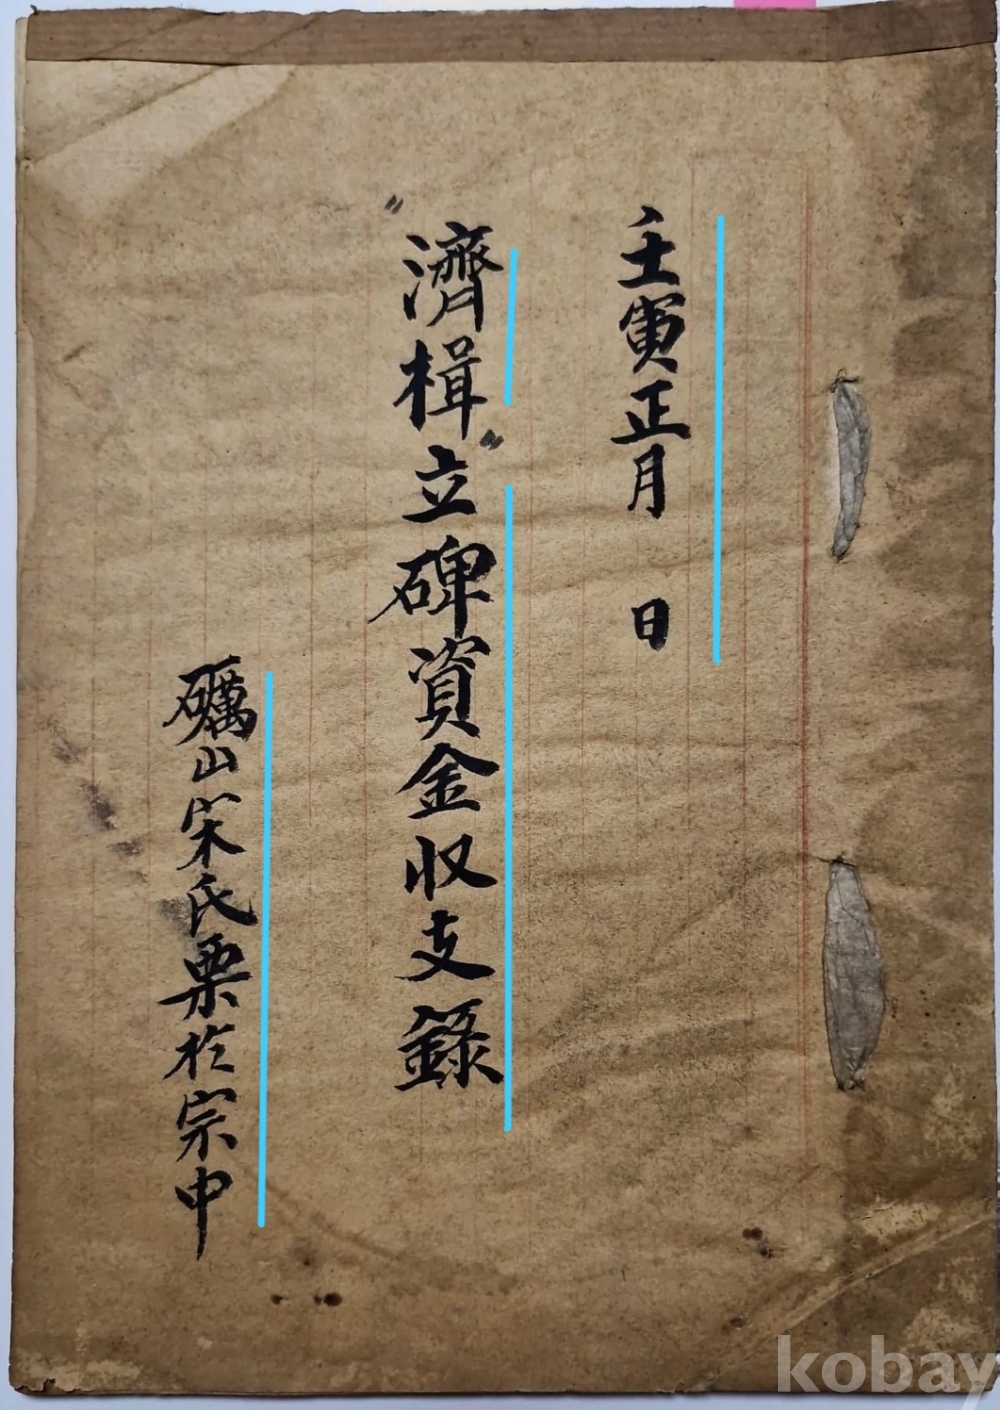 壬寅正月 日
"濟楫"立碑資金収支錄
礪山宋氏栗於宗中
kobay